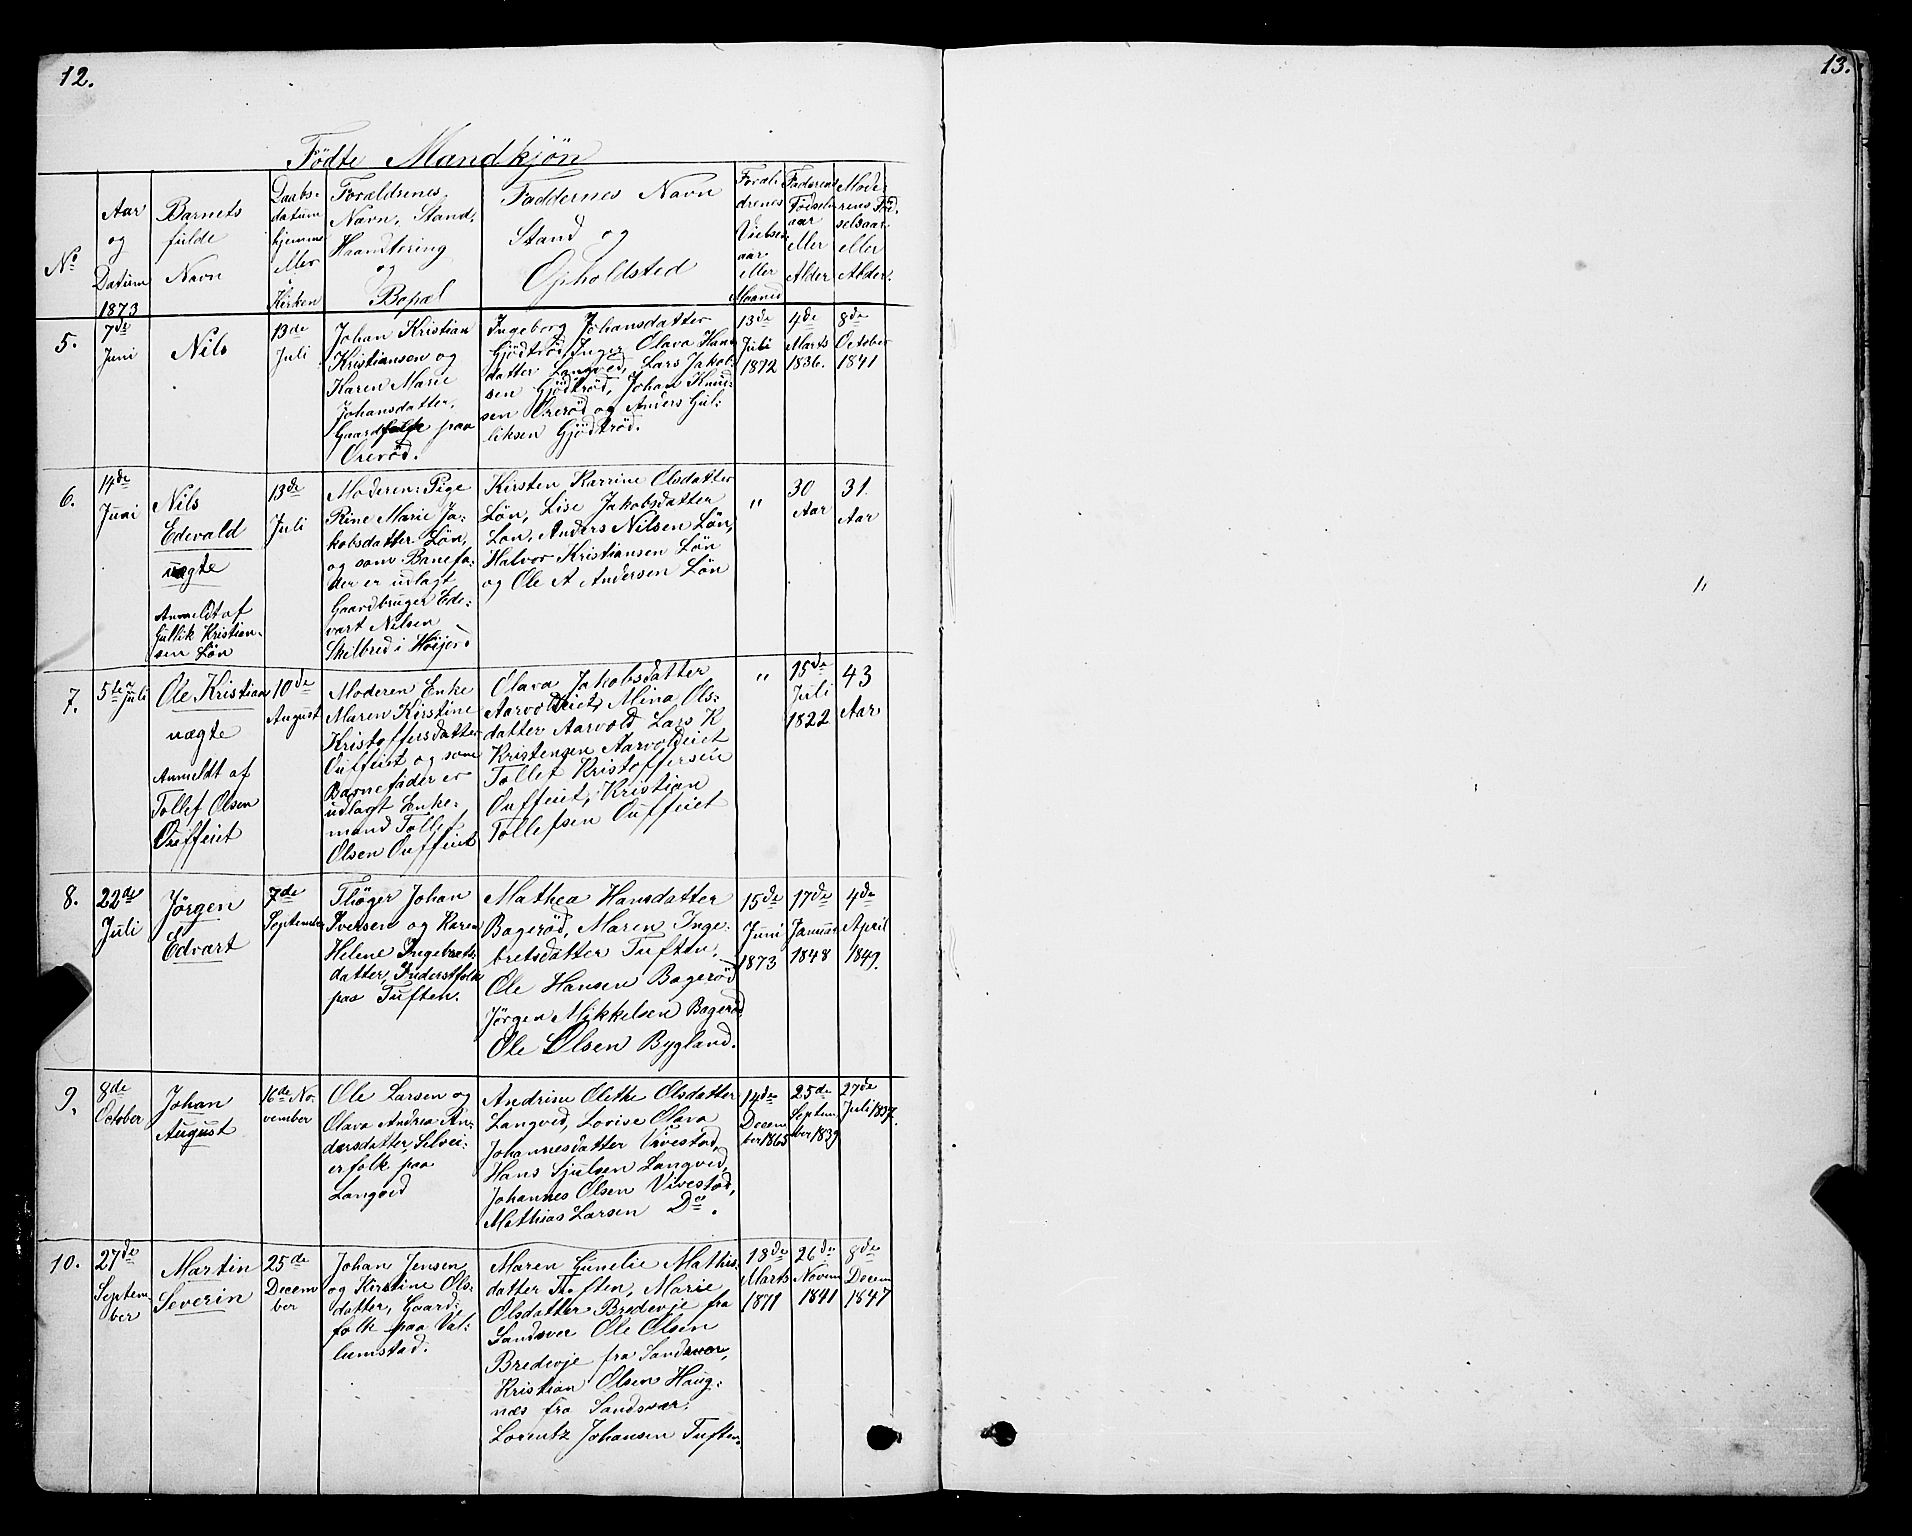 12.
13.
Födte Mandkjön
No
Aar
og
Datum
1873
Barnets
fulde
Navn
Daabs-
datum
hjemme
eller
i
Kirken
Forældrenes
Navn, Stand,
Haandtering
og
Bopæl
Faddernes Navn
Stand og
Opholdsted
Foræl-
drenes
Vielses
aar
eller
Maaned
Faderens
Födsels
aar
eller
Alder
Mode-
rens Föd-
selsaar
eller
Alder.
5.
7de
Juni
Nils
13de
Juli
Johan Kristian
Kristiansen og
Karen Marie
Johansdatter,
Gaardfolk paa
Öreröd.
Ingeborg Johansdatter
Gjödtröd, Inger Olava Hans
datter Langved, Lars Jakob-
sen Gjödtröd, Johan Knud-
sen Öreröd og Anders Gul-
liksen Gjödtröd.
13de
Juli
1872
4de
Marts
1836.
8de
October
1841
6.
14de
Juni
Nils
Edevald
uægte
Anmeldt af
Gullik Kristian-
sen Lön
13de
Juli
Moderen: Pige
Rine Marie Ja-
kobsdatter Lön,
og som Barnefa-
der er udlagt
Gaardbruger Ede-
vart Nilsen
Skilbred i Höijord
Kirsten Karrine Olsdatter
Lön, Lise Jakobsdatter
Lön, Anders Nilsen Lön,
Halvor Kristiansen Lön
og Ole A Andersen Lön
"
30
Aar
31.
Aar
7.
5te Juli
Ole Kristian
uægte
Anmeldt af
Tollef Olsen
Ouffeiet
10de
August
Moderen Enke
Maren Kirstine
Kristoffersdatter
Ouffeiet og som
Barnefader er
udlagt Enke-
mand Tollef
Olsen Ouffeiet
Olava Jakobsdatter
Aarvoldeiet, Mina Ols-
datter Aarvold Lars K
Kristensen Aarvoldeiet
Tollef Kristoffersen
Ouffeiet, Kristian
Tollefsen Ouffeiet
"
15de
Juli
1822
43
Aar
8.
22de
Juli
Jörgen
Edvart
7de
September
Thöger Johan
Iversen og Karen
Helene Ingebrets-
datter, Inderstfolk
paa Tuften.
Mathea Hansdatter
Bageröd, Maren Inge-
bretsdatter Tuften,
Ole Hansen Bageröd
Jörgen Mikkelsen Bageröd
Ole Olsen Bygland.
15de
Juni
1873
17de
Januar
1848
4de
April
1849.
9.
8de
October
Johan
August
16de No-
vember
Ole Larsen og
Olava Andrea An-
dersdatter, Selvei-
erfolk paa
Langved
Andrine Olethe Olsdatter
Langved, Lovise Olava
Johannesdatter Vivestad,
Hans Sjulsen Langved,
Johannes Olsen Vivestad,
Mathias Larsen Do.
14de
Decem
ber 1865
25de
Septem
ber 1839
27de
Juli 1837.
10.
27de
Septem-
ber
Martin
Severin
25de
Decem
ber
Johan Jensen
og Kirstine Ols-
datter, Gaard-
folk paa Val-
lumstad.
Maren Gunelie Mathis-
datter Tuften, Marie
Olsdatter Bredevje fra
Sandsver Ole Olsen
Bredevje fra Sandsver,
Kristian Olsen Haug-
næs fra Sandsvær,
Lorentz Johansen Tuften.
18de
Marts
1871
26de
Novem
1841
8de
Decem
1847
"